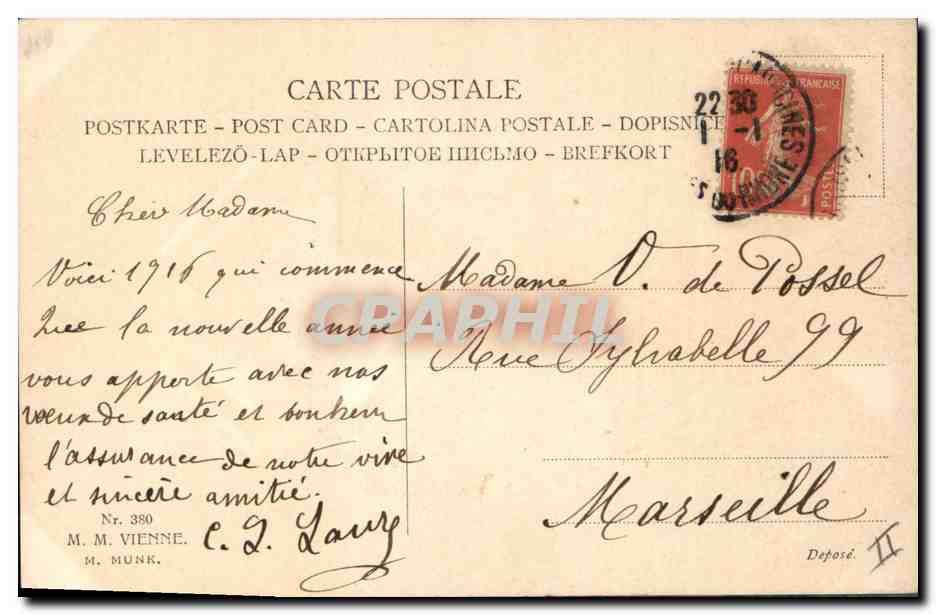 CARTE POSTALE
POSTKARTE – POST CARD – CARTOLINA POSTALE – DOPISNICE
LEVELEZÖ-LAP – ОТКРЫТОЕ ПИСЬМО – BREFKORT
RÉPUBLIQUE FRANÇAISE
22 30
1 -1
16
DU RHONE
10
POSTES
Cher Madame
Voici 1916 qui commence
Que la nouvelle année
vous apporte avec nos
vœux de santé et bonheur
l'assurance de notre vive
et sincère amitié.
Nr. 380
M. M. VIENNE.
M. MUNK.
Madame V. de Possel
Rue Sylvabelle 99
Marseille
Deposé.
II
CPARHIL